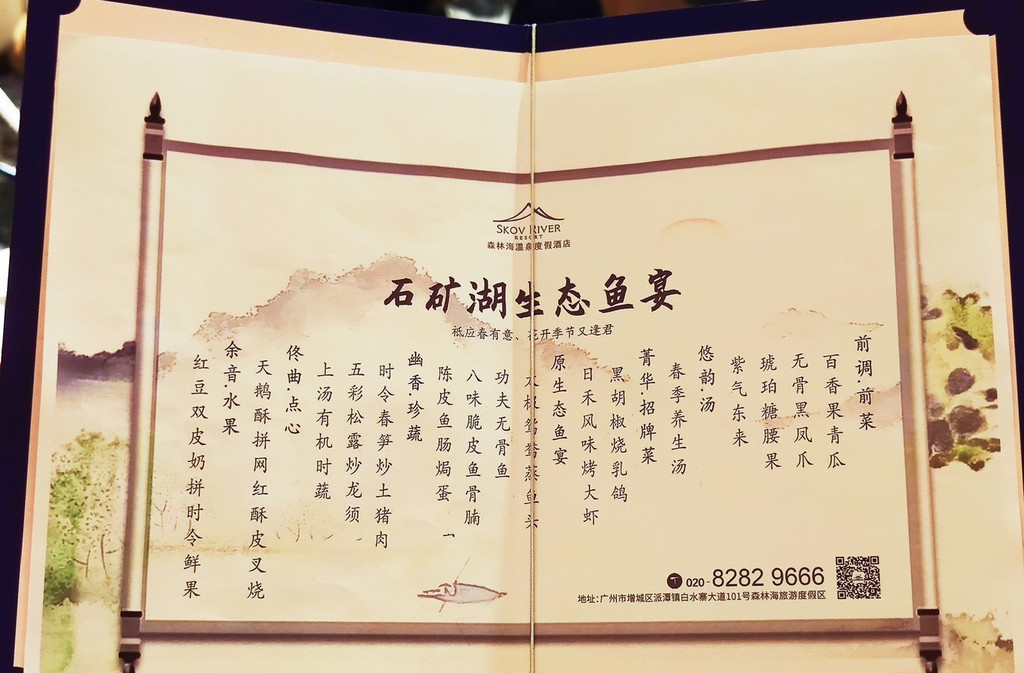 SKOV RIVER
RESORT
森林海温泉度假酒店
石矿湖生态鱼宴
祗应春有意、花开季节又逢君
前调·前菜
百香果青瓜
无骨黑凤爪
琥珀糖腰果
紫气东来
悠韵·汤
春季养生汤
菁华·招牌菜
黑胡椒烧乳鸽
日禾风味烤大虾
原生态鱼宴
木椒鸳鸯蒸鱼头
功夫无骨鱼
八味脆皮鱼骨腩
陈皮鱼肠焗蛋
幽香·珍蔬
时令春笋炒土猪肉
五彩松露炒龙须
上汤有机时蔬
佟曲·点心
天鹅酥拼网红酥皮叉烧
余音·水果
红豆双皮奶拼时令鲜果
020-8282 9666
地址:广州市增城区派潭镇白水寨大道101号森林海旅游度假区